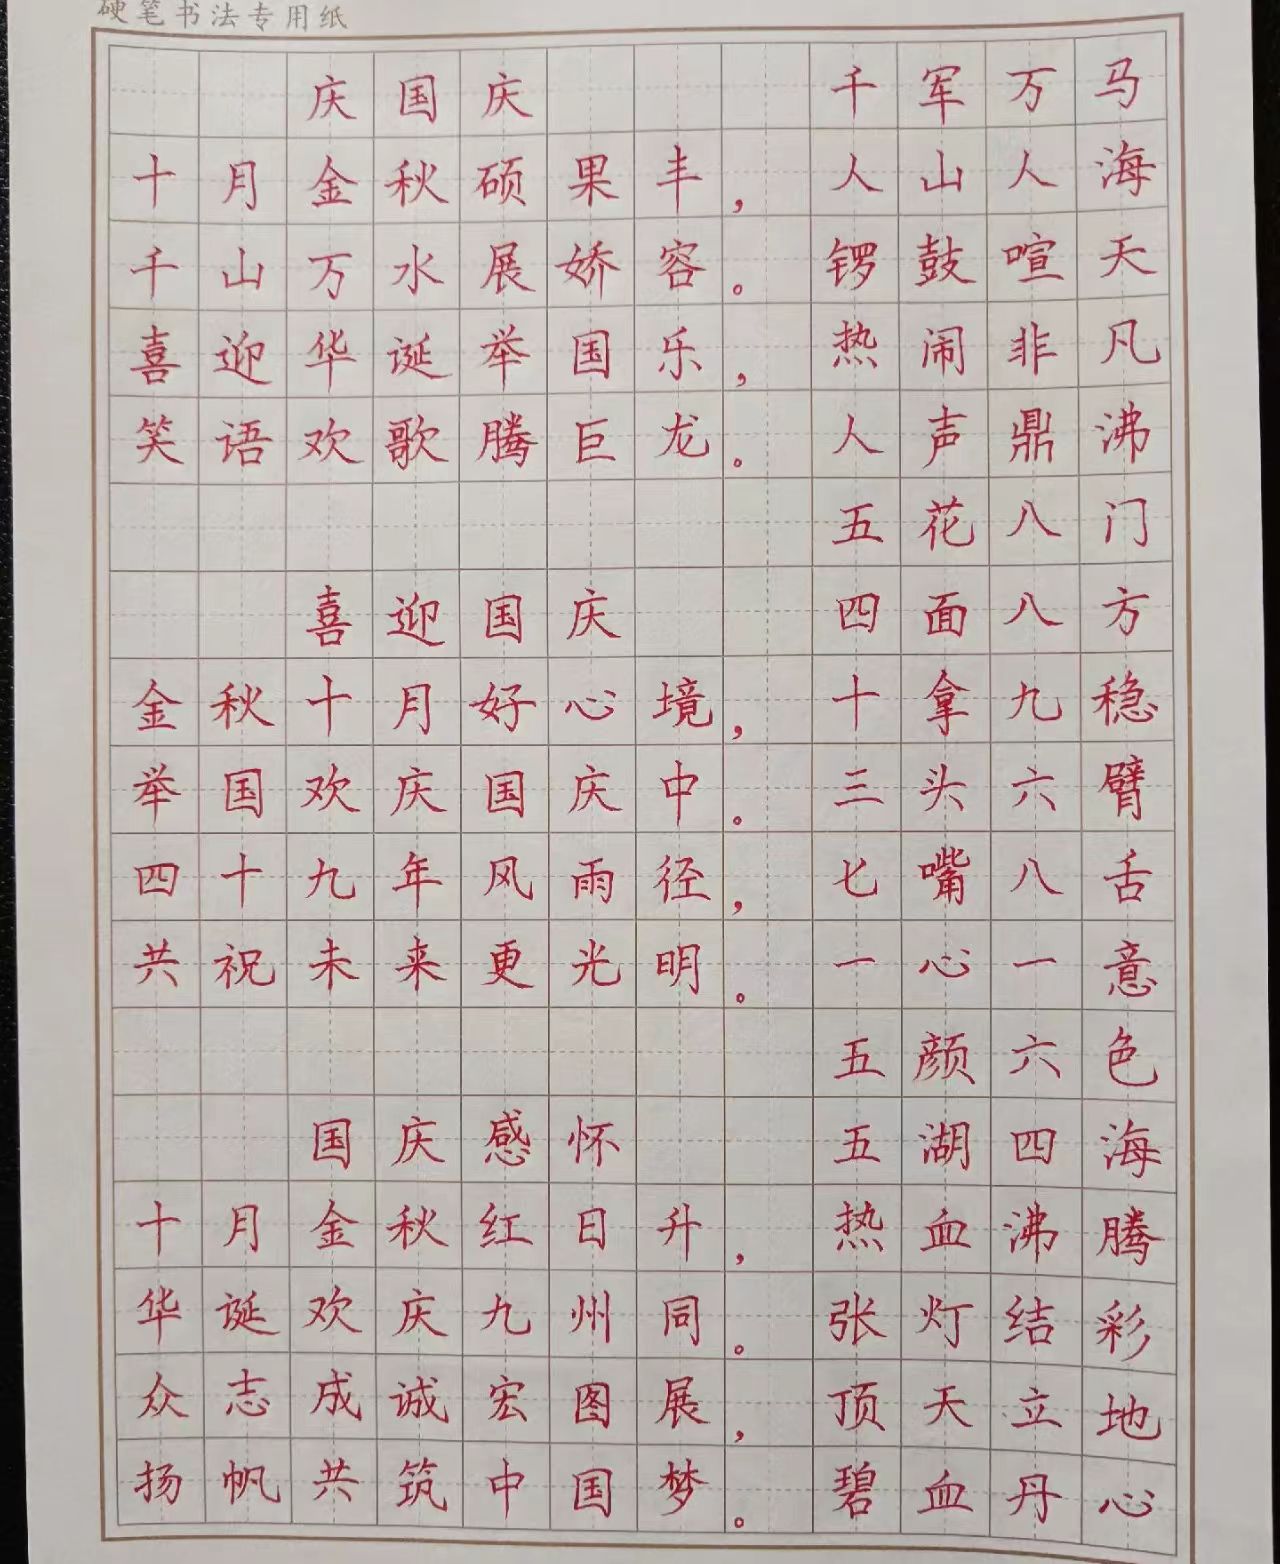 硬笔书法专用纸
庆国庆 千军万马
十月金秋硕果丰， 人山人海
千山万水展娇容。 锣鼓喧天
喜迎华诞举国乐， 热闹非凡
笑语欢歌腾巨龙。 人声鼎沸
五花八门
喜迎国庆 四面八方
金秋十月好心境， 十拿九稳
举国欢庆国庆中。 三头六臂
四十九年风雨径， 七嘴八舌
共祝未来更光明。 一心一意
五颜六色
国庆感怀 五湖四海
十月金秋红日升， 热血沸腾
华诞欢庆九州同。 张灯结彩
众志成诚宏图展， 顶天立地
扬帆共筑中国梦。 碧血丹心